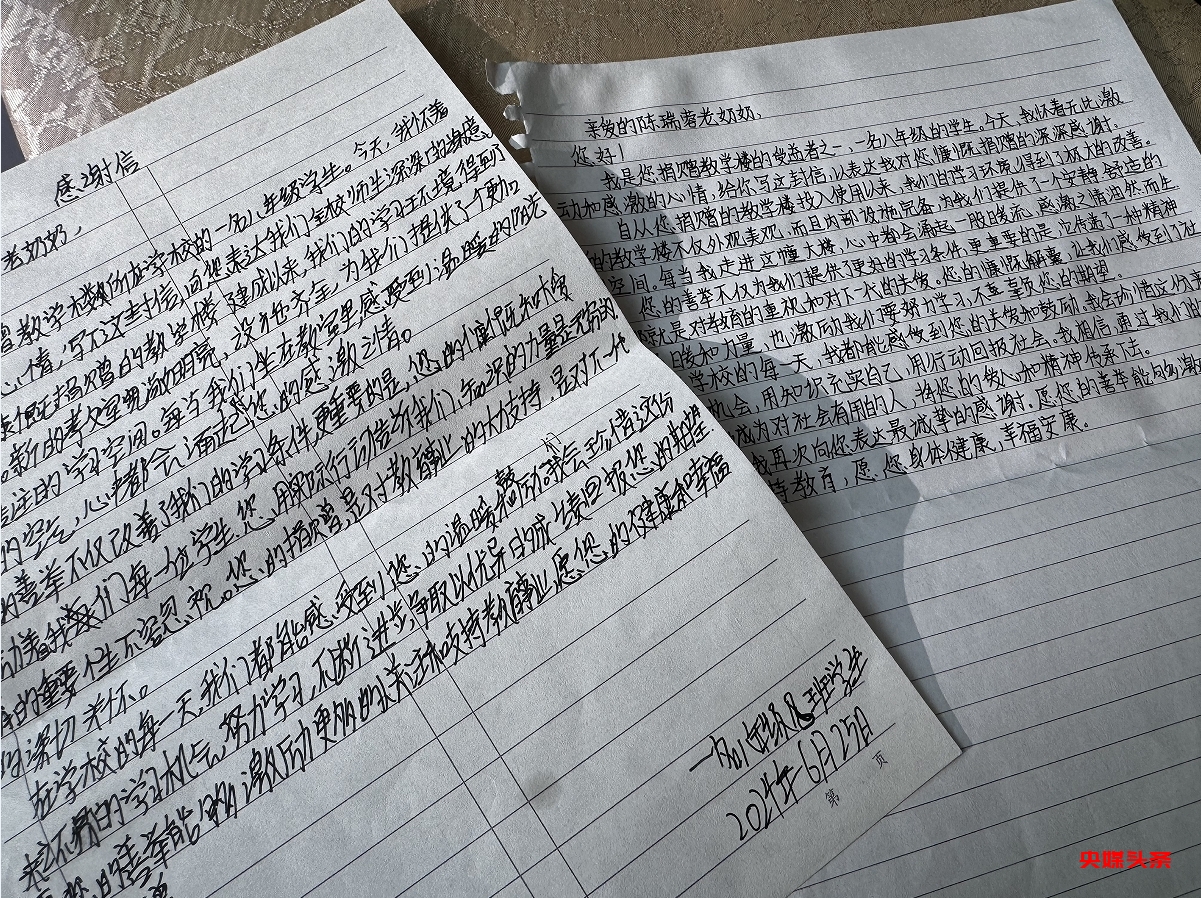 感谢信
老奶奶，
教学楼所在学校的一名八年级学生。今天，我怀着
心情，写下这封信，向您表达我们全校师生深深的谢意。
捐赠的教学楼建成以来，我们的学习环境得到了
新的教室宽敞明亮，设施齐全，为我们提供了一个更加
专注的学习空间。每当我们坐在教室里，感受到温暖的阳光
的空气，心中都会涌起对您的感激之情。
善举不仅改善了我们的学习条件，更重要的是，您的慷慨和
励着我们每一位学生。您用实际行动告诉我们，知识的力量是无穷的
的重要性不容忽视。您的捐赠，是对教育事业的大力支持，是对下一代
的深切关怀。
在学校的每一天，我们都能感受到您的温暖和鼓励。我们会珍惜这份
来之不易的学习机会，努力学习，不断进步，争取以优异的成绩回报您的期望
您的善举能够激励更多的人关注和支持教育事业，愿您的健康和幸福
一名八年级八班学生
2024年6月25日
第 页
亲爱的陈瑞蓉老奶奶，
您好！
我是您捐赠教学楼的受益者之一，一名八年级的学生。今天，我怀着无比激
动和感激的心情，给你写这封信，以表达我对您慷慨捐赠的深深感谢。
自从您捐赠的教学楼投入使用以来，我们的学习环境得到了极大的改善。
的教学楼不仅外观美观，而且内部设施完备，为我们提供了一个安静、舒适的
空间。每当我走进这幢大楼，心中都会涌起一股暖流，感激之情油然而生
您的善举不仅为我们提供了更好的学习条件，更重要的是，它传递了一种精神
就是对教育的重视和对下一代的关爱。您的慷慨解囊，让我们感受到了社
温暖和力量，也激励我们要努力学习，不辜负您的期望。
学校的每一天，我都能感受到您的关爱和鼓励。我会珍惜这份来
机会，用知识充实自己，用行动回报社会。我相信，通过我们的
成为对社会有用的人，将您的爱心和精神传承下去。
我再次向您表达最诚挚的感谢。愿您的善举能够激
持教育，愿您身体健康、幸福安康。
央媒头条